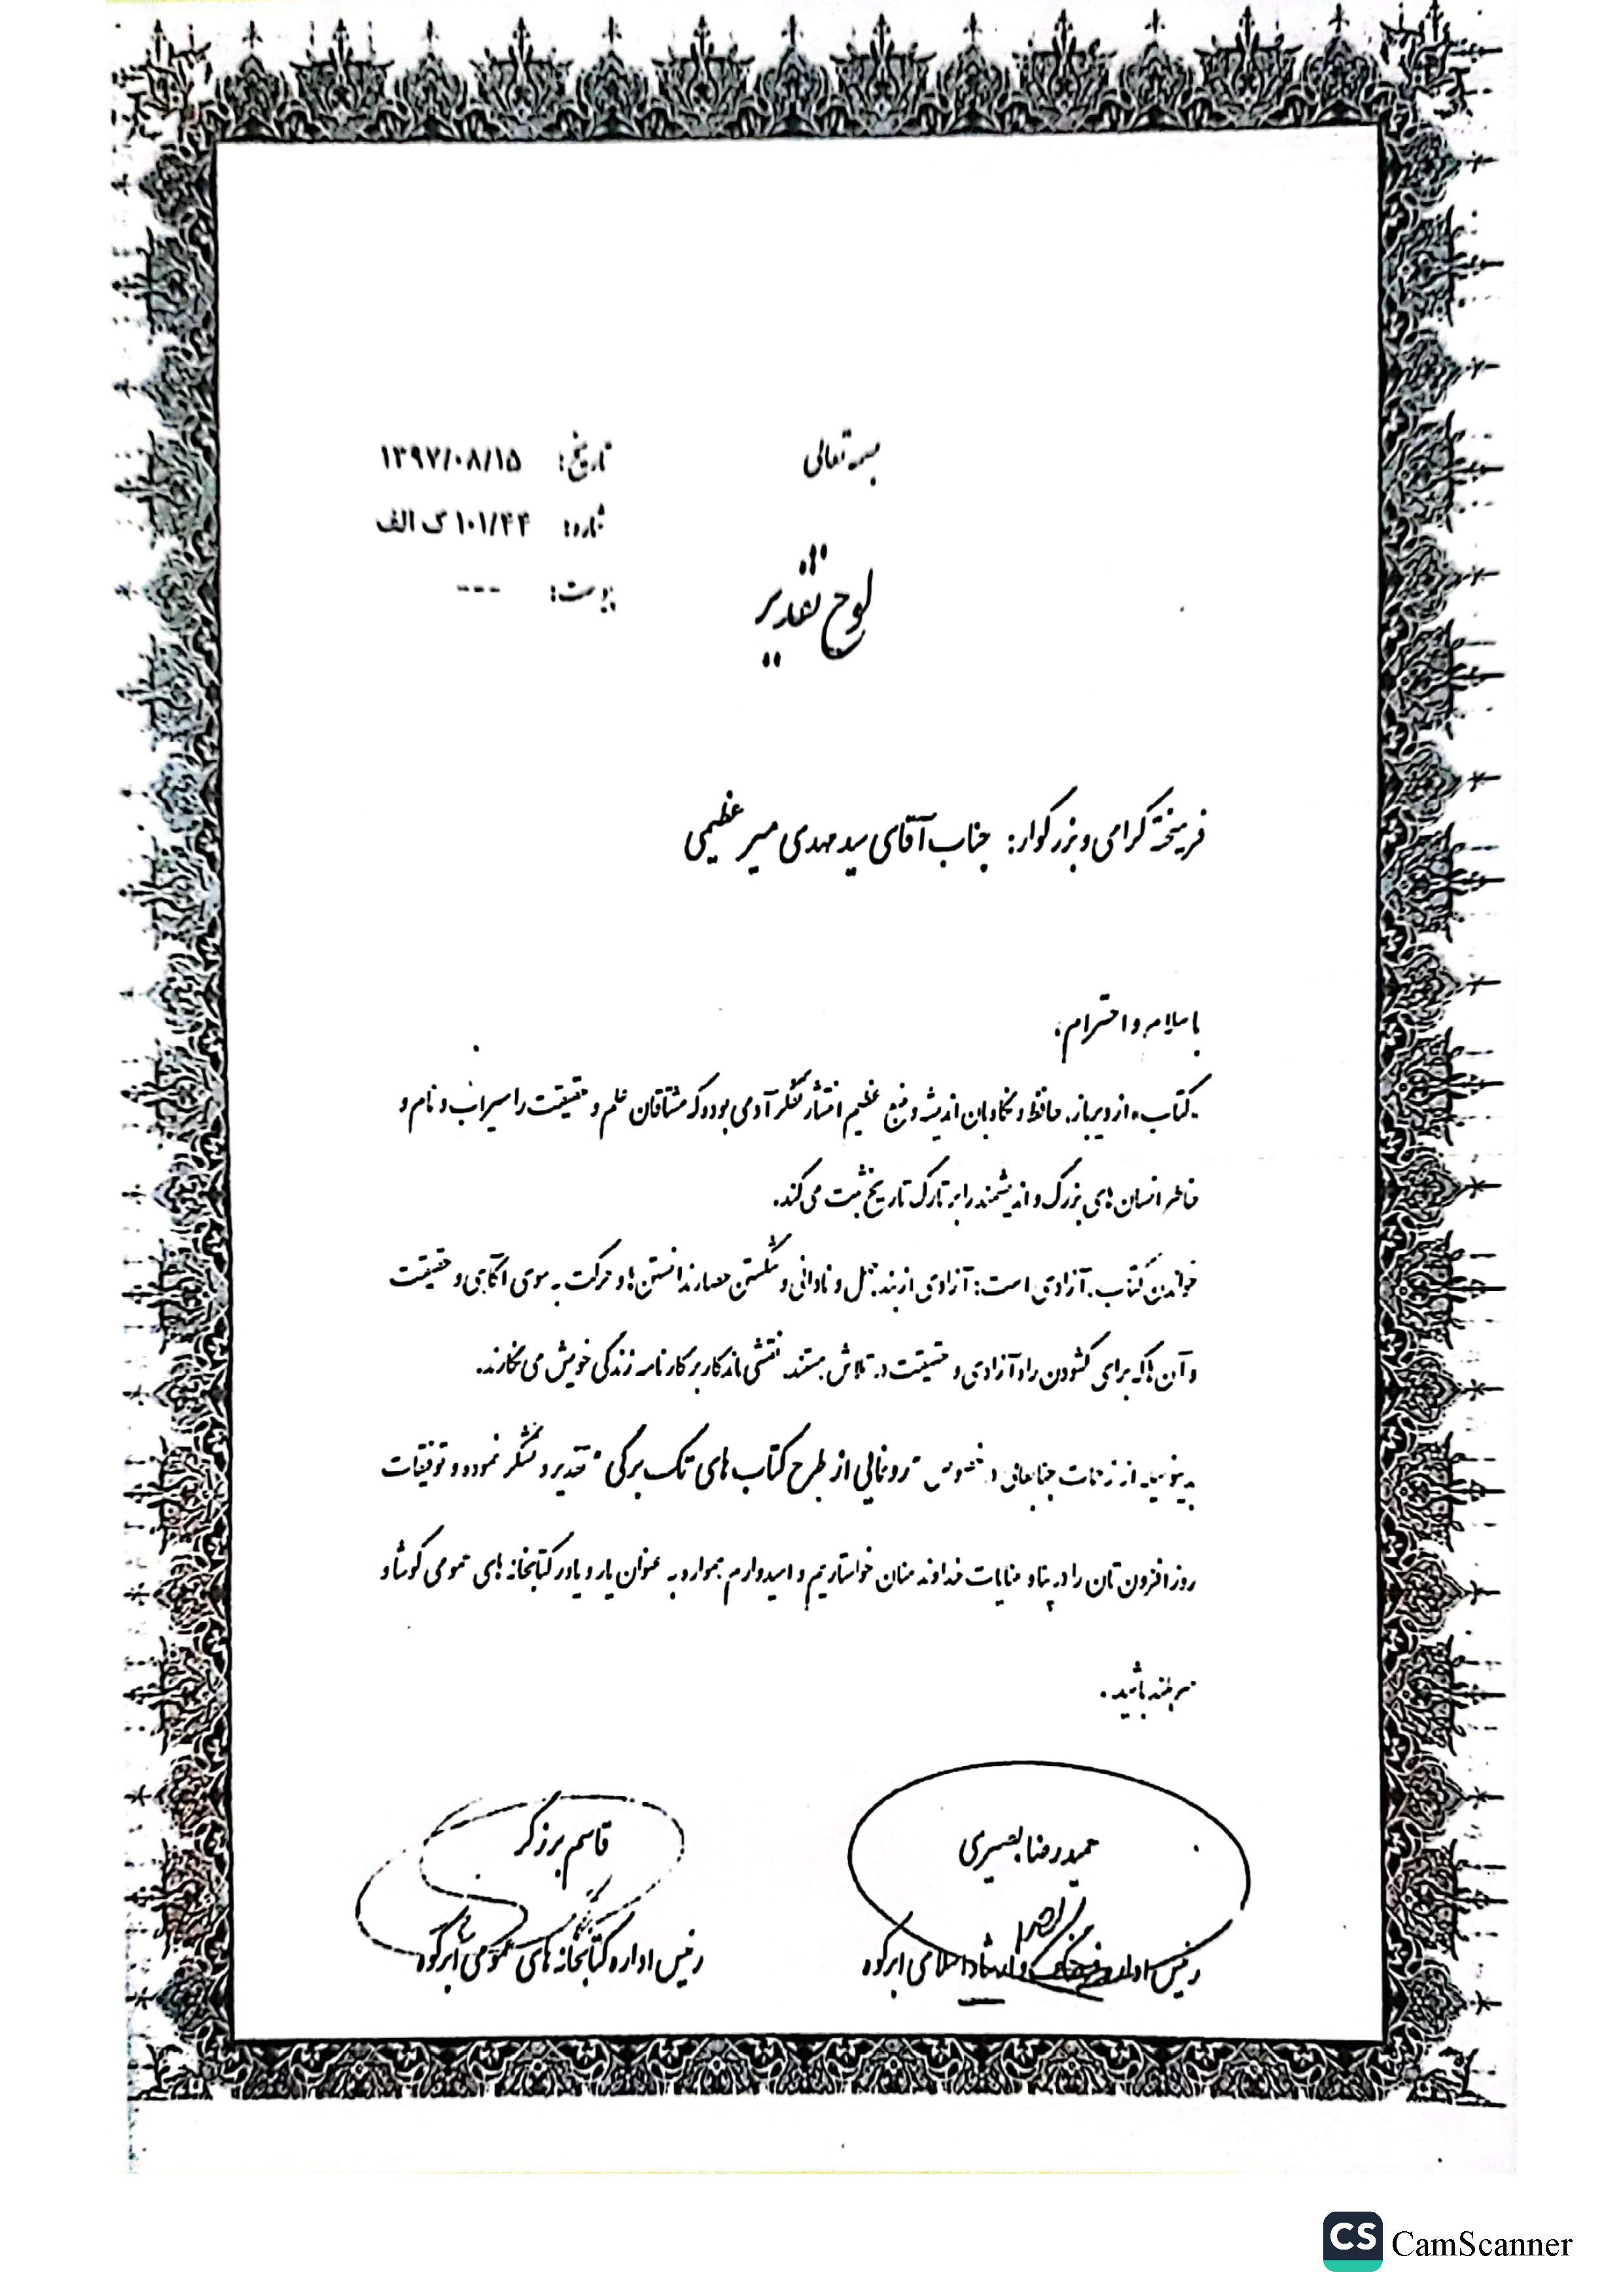 بسمه تعالی
تاریخ: ۱۳۹۷/۰۸/۱۵
شماره: ۱۰۱/۴۴ ک الف
پیوست: ---
لوح تقدیر
فریخته گرامی و بزرگوار: جناب آقای سید مهدی میرعظیمی
با سلام و احترام،
«کتاب» از دیرباز، حافظ و نگاهبان اندیشه و منبع عظیم انتشار تفکر آدمی بوده که مشتاقان علم و حقیقت را سیراب و نام و
خاطر انسان های بزرگ و اندیشمند را بر تارک تاریخ ثبت می کند.
خواندن کتاب، آزادی است: آزادی از بند جهل و نادانی و شکستن حصار ندانستن ها و حرکت به سوی آگاهی و حقیقت
و آن ها که برای گشودن راه آزادی و حقیقت در تلاش هستند، نقشی ماندگار بر کارنامه زندگی خویش می نگارند.
بدینوسیله از زحمات جنابعالی در خصوص "رونمایی از طرح کتاب های تک برگی" تقدیر و تشکر نموده و توفیقات
روز افزون تان را در پناه عنایات خداوند منان خواستاریم و امیدوارم همواره به عنوان یار و یاور کتابخانه های عمومی کوشا و
سربلند باشید.
حمیدرضا بصیری
رئیس اداره فرهنگ و ارشاد اسلامی ابرکوه
قاسم برزگر
رئیس اداره کتابخانه های عمومی ابرکوه
CS CamScanner